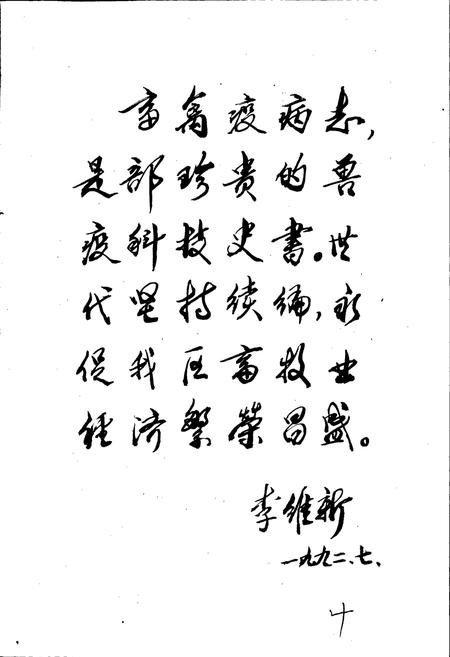 畜禽疫病志，
是部珍贵的兽
疫科技史书。世
代坚持续编，永
促我区畜牧业
经济繁荣昌盛。
李维新
一九九二、七、
十